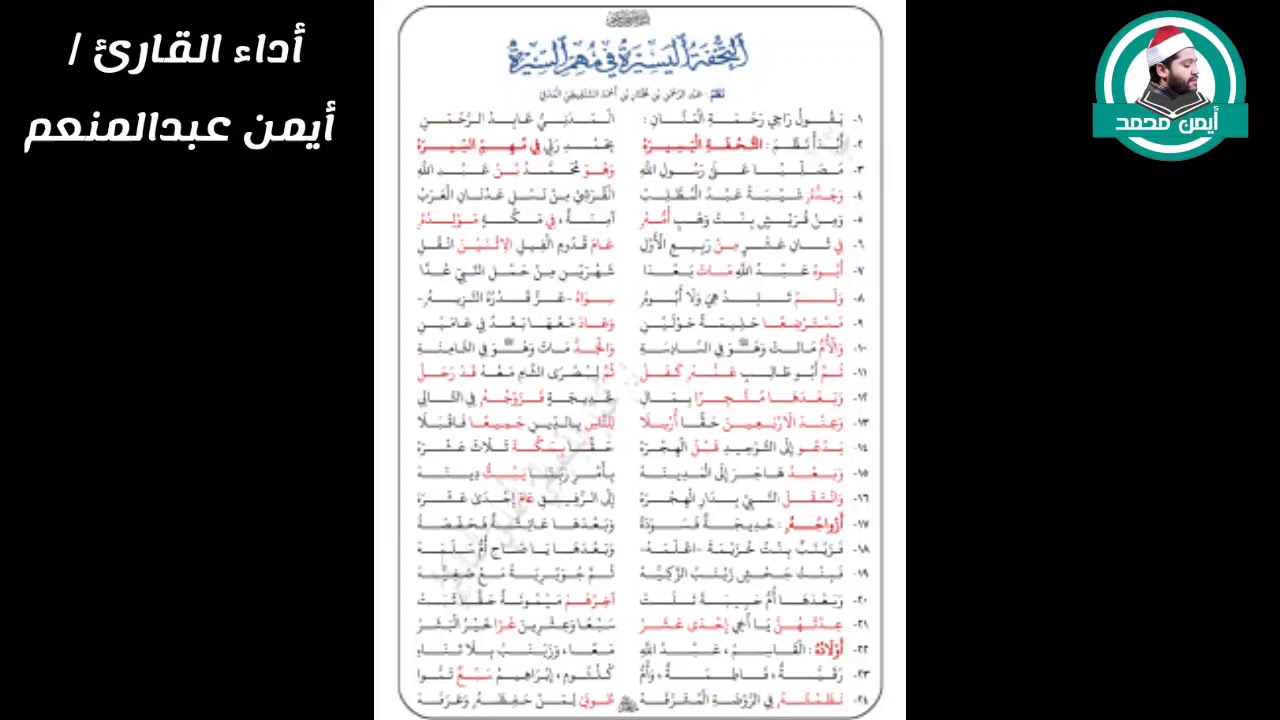 أداء القارئ /
أيمن عبدالمنعم
أيمن محمد
التحفة اليسيرة في مهم السيرة
نظم: عبد الرحمن بن مختار بن أحمد الشنقيطي المدني
١- يقول راجي رحمة المنان: المدني عابد الرحمن
٢- أبدأ نظم: التحفة اليسيرة بحمد ربي في مهم السيرة
٣- مصليا على رسول الله وهو محمد بن عبد الله
٤- وجده شيبة عبد المطلب القرشي من نسل عدنان العرب
٥- ومن قريش بنت وهب أمه آمنة، في مكة مولده
٦- في ثان عشر من ربيع الأول عام قدوم الفيل الاثنين انقل
٧- أبوه عبد الله مات بعدا شهرين من حمل النبي عدا
٨- ولم تلد هي ولا أبوه سواه -عز قدره النزيه-
٩- مسترضعا حليمة حولين وعاد معها بعد في عامين
١٠- والأم ماتت وهو في السادسة والجد مات وهو في الثامنة
١١- ثم أبو طالب عمه كفل ثم لبصرى الشام معه قد رحل
١٢- وبعدها متجرا بمال خديجة فزوجه في التالي
١٣- وعند الاربعين حقا أرسلا للناس بالدين جميعا فاقبلا
١٤- يدعو إلى التوحيد قبل الهجرة حقا بمكة ثلاث عشرة
١٥- وبعد هاجر إلى المدينة بأمر ربنا يبث دينه
١٦- وانتقل النبي بدار الهجرة إلى الرفيق عام إحدى عشرة
١٧- أزواجه: خديجة فسودة وبعدها عائشة فحفصة
١٨- فزينب بنت خزيمة -اعلمه- وبعدها يا صاح أم سلمة
١٩- فبنت جحش زينب الزكية ثم جويرية مع صفية
٢٠- وبعدها أم حبيبة تلت آخرهم ميمونة حقا ثبت
٢١- عدتهن يا أخي إحدى عشر سبعا وعشرين غزا خير البشر
٢٢- أولاده: القاسم، عبد الله معا، وزينب بلا تناه
٢٣- رقية، فاطمة، وأم كلثوم، إبراهيم سبع تموا
٢٤- نظمته في الروضة المشرفة طوبى لمن حفظه وعرفه